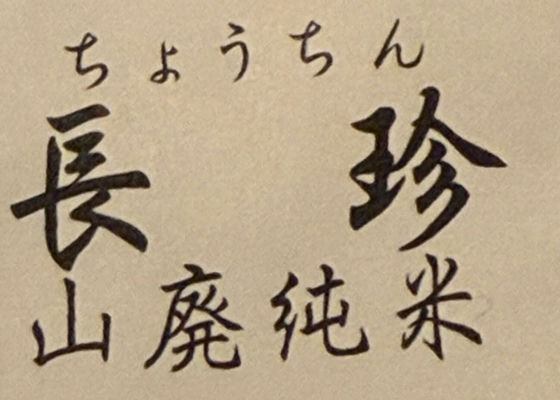 ちょうちん
長珍
山廃純米